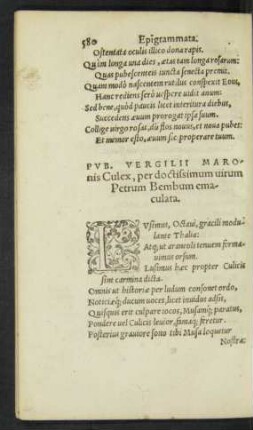 580 Epigrammata.
Ostentata oculis illico dona rapis.
Quàm longa una dies, ætas tam longa rosarum:
Quas pubescenteis iuncta senecta premit.
Quam modò nascentem rutilus conspexit Eous,
Hanc rediens serò uespere uidit anum.
Sed bene, quòd paucis licet interitura diebus,
Succedens æuum prorogat ipsa suum.
Collige uirgo rosas, dũ flos nouus, et noua pubes:
Et memor esto, æuum sic properare tuum.
PVB. VERGILII MARO-
nis Culex, per doctissimum uirum
Petrum Bembum ema-
culata.
LVsimus, Octaui, gracili modu-
lante Thalia:
Atq; ut araneoli tenuem firma-
uimus orsum.
Lusimus hæc propter Culicis
sint carmina dicta.
Omnis ut historiæ per ludum consonet ordo,
Notitiæq; ducum uoces, licet inuidus adsit,
Quisquis erit culpare iocos, Musamq; paratus,
Pondere uel Culicis leuior, famaq; feretur.
Posterius grauiore sono tibi Musa loquetur
Nostra: